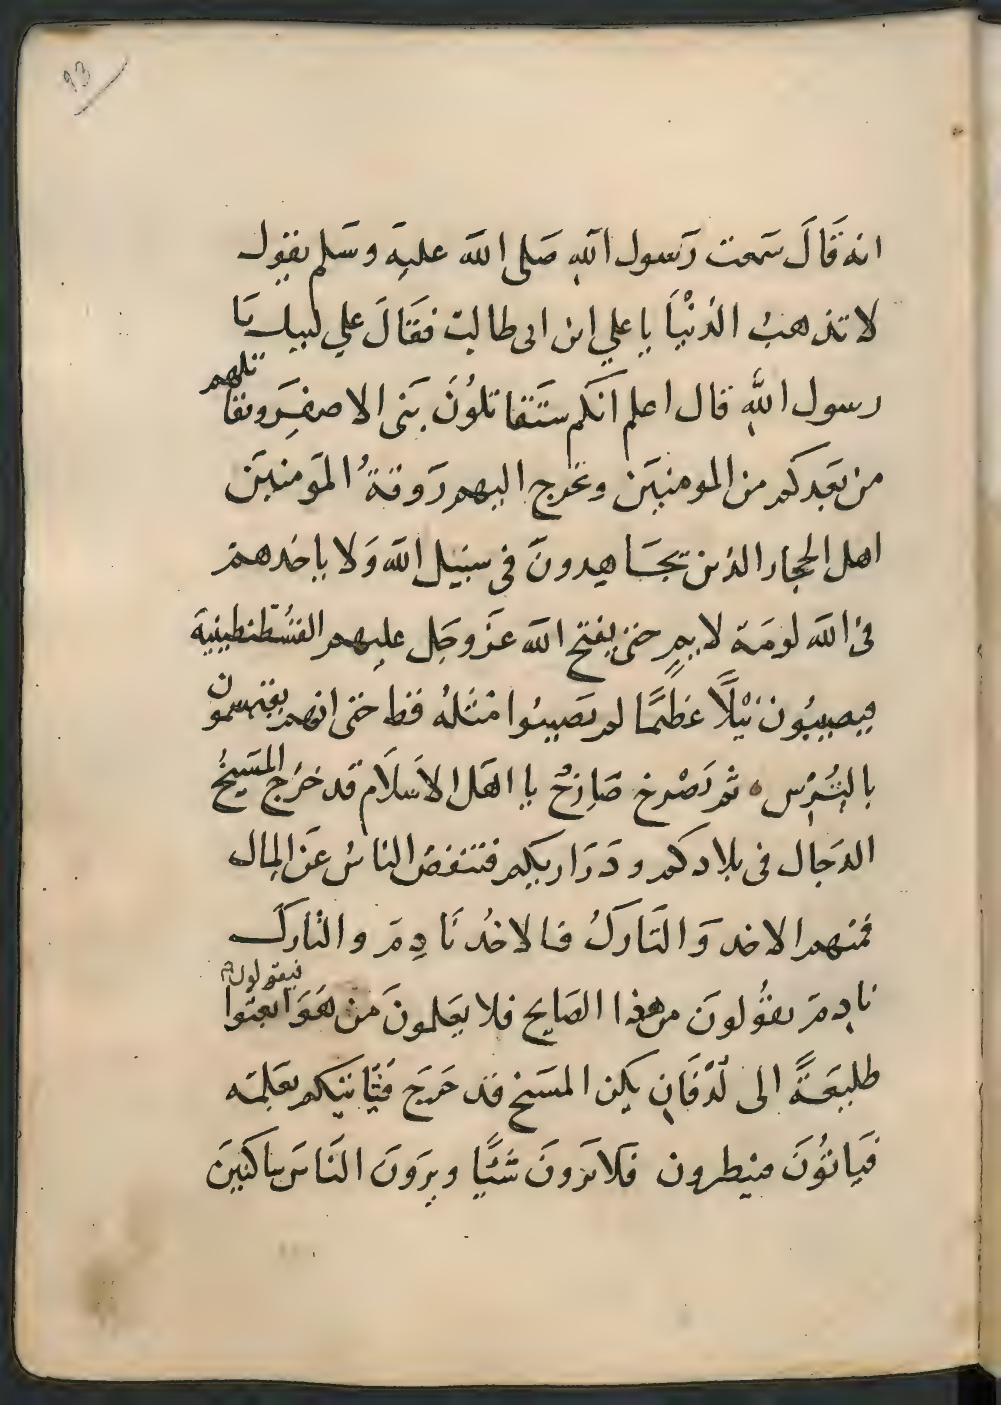 93
انه قَالَ سَمعت رَسول اللهِ صَلى اللهَ عليهِ وسَلم يقول
لا تذهبُ الدُنْيَا يا علي ابن ابى طالب فقَالَ علي لبيك يَا
رسول اللهِ قال اعلم انكم ستَقاتلوُنَ بَنى الاصفَرِ ويقاتلهم
من بَعَدكم من المومنيَن وتخرج اليهم رَوقةُ المَومنيَن
اهل الحجاز الذين يجَاهِدونَ فى سَبيل الله وَلا ياخذهمْ
فى الله لومَة لايمٍ حتى يفتح الله عَز وجَل عليهم القسُطنطينيةَ
فيصيبُون نَيْلًا عَظيمًا لم يصَيبوا مثَلهُ قط حتى انهم يقتسمون
بالتُرْسِ ثم يَصْرخ صَارخٌ يا اهَل الاسَلَام قَد خرَج المَسَيحُ
الدَجال فى بلادكم ودَرَاريكم فتنفضُ الناسُ عَن المال
فمنهم الاخد وَالتَارَكُ فالاخُد نَادِمَ والتاركَ
نادِمَ يقوُلونَ من هذا الصَايح فلا يعَلمونَ مَن هَوَ فيقولون ابعثوا
طليعَةً الى لُدّ فَان يكن المسَيح قد خرَجَ فيَاتيكم بعَلمَه
فيَاتوُنَ فينظرون فَلا يَرَونَ شَيًا ويرَونَ النَاسَ سَاكنينَ